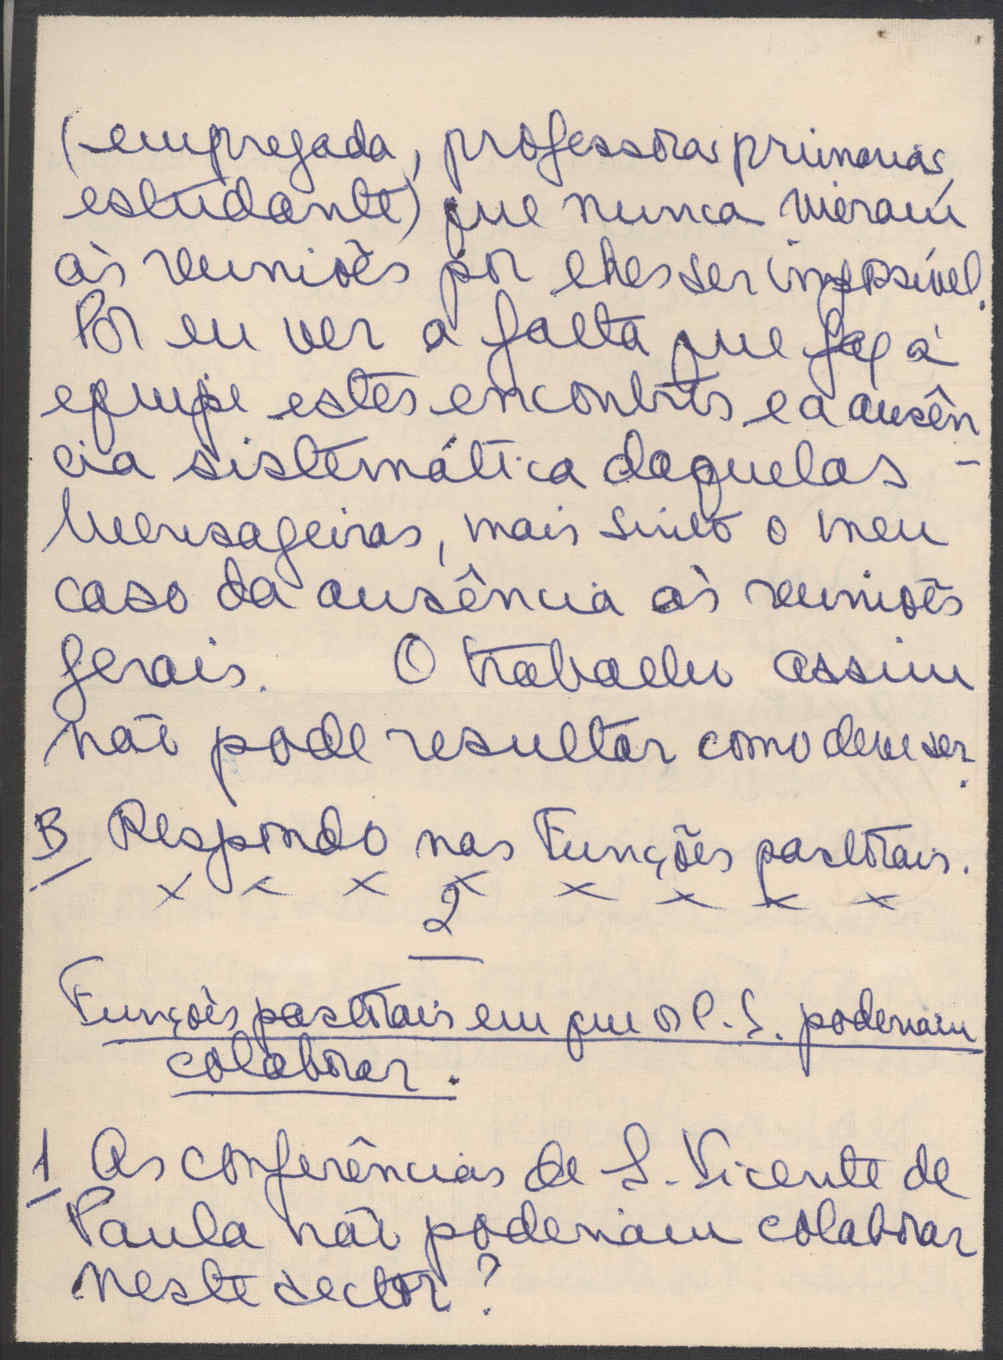 (empregada, professoras primarias,
estudante) que nunca vieram
às reuniões por lhes ser impossível.
Por eu ver a falta que faz à
equipe estes encontros e a ausên
cia sistemática daquelas -
Mensageiras, mais sinto o meu
caso da ausência às reuniões
gerais. O trabalho assim
não pode resultar como deve ser.
B Respondo nas Funções pastorais.
x x x x x x x x
2
Funções pastorais em que os P. S. poderiam
colaborar.
1 As conferências de S. Vicente de
Paula não poderiam colaborar
neste sector?